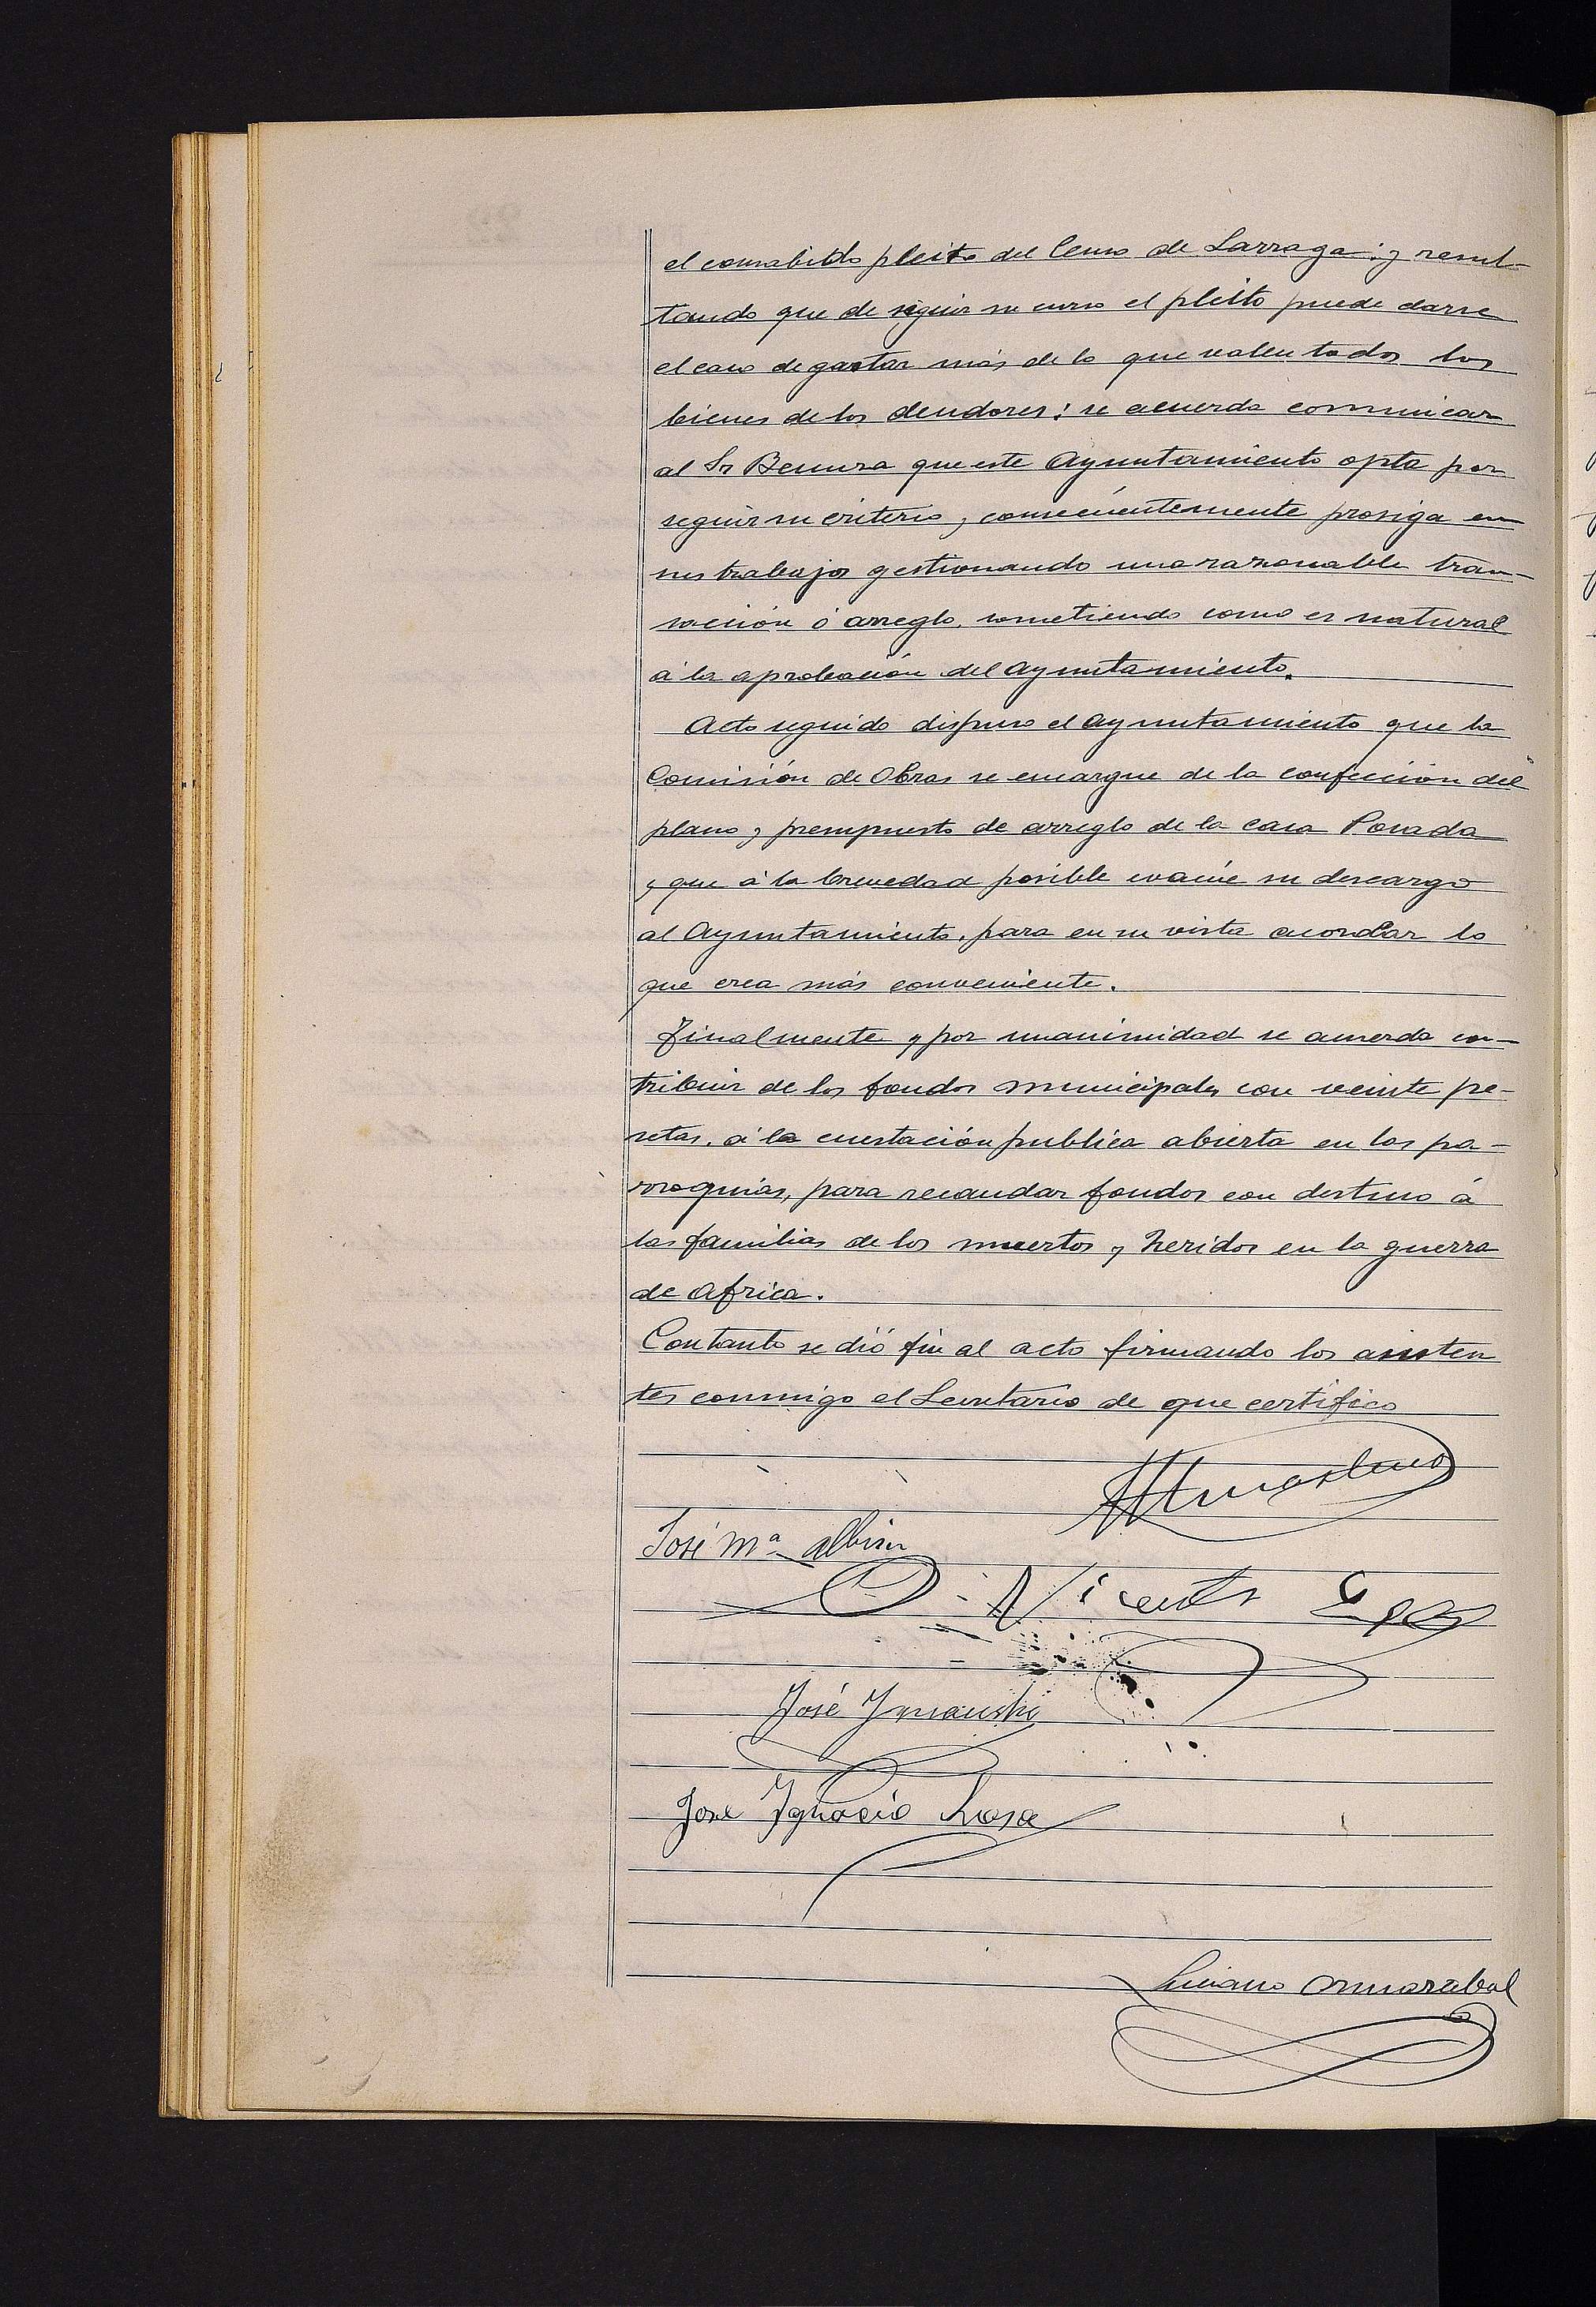 el consabido pleito del Censo de Larraga: y resul-
tando que de seguir su curso el pleito puede darse
el caso de gastar más de lo que valen todos los
bienes de los deudores; se acuerda comunicar
al Sr Benura que este Ayuntamiento opta por
seguir su criterio y consecúentemente prosiga en
sus trabajos gestionando una razonable tran-
sacción ó arreglo, sometiendo como es natural
á la aprobación del Ayuntamiento.
Acto seguido dispuso el Ayuntamiento que la
Comisión de Obras se encargue de la confección del
plano y presupuesto de arreglo de la casa Posada
y que á la brevedad posible evacúe su descargo
al Ayuntamiento, para en su vista acordar lo
que crea más conveniente.
Finalmente y por unanimidad se acuerda con-
tribuir de los fondos municipales con veinte pe-
setas, á la cuestación publica abierta en las pa-
rroquias, para recaudar fondos con destino á
las familias de los muertos y heridos en la guerra
de Africa.
Con tanto se dió fin al acto firmando los asisten
tes conmigo el Secretario de que certifico
José Mª Albisu
Vicente
José
José Ignacio Lasa
Luciano